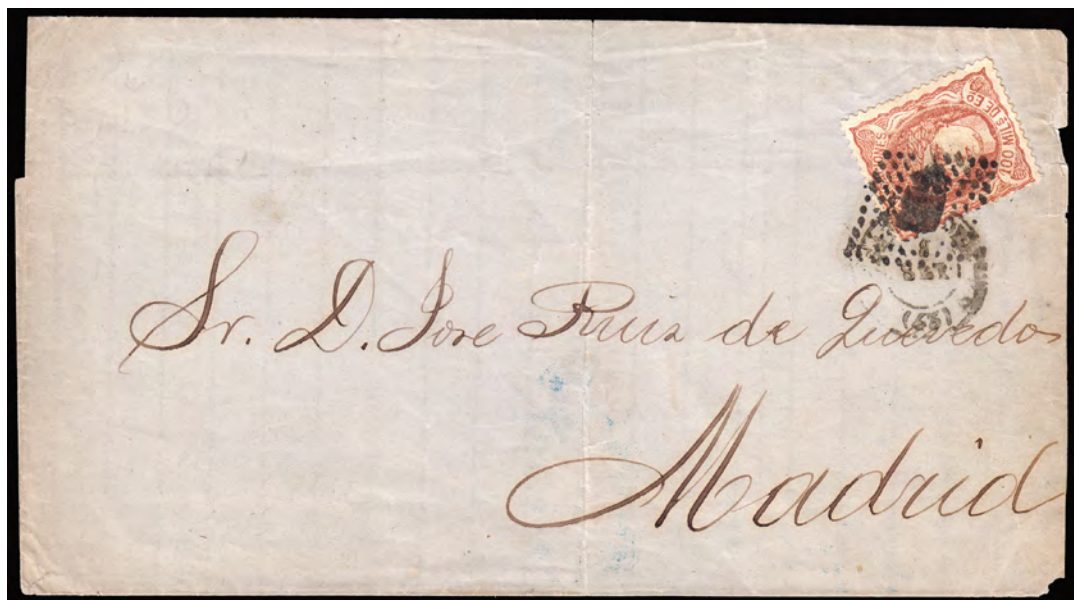 100 MILS DE Eo
Sr. D. Jose Ruiz de Quevedo
Madrid
(55)